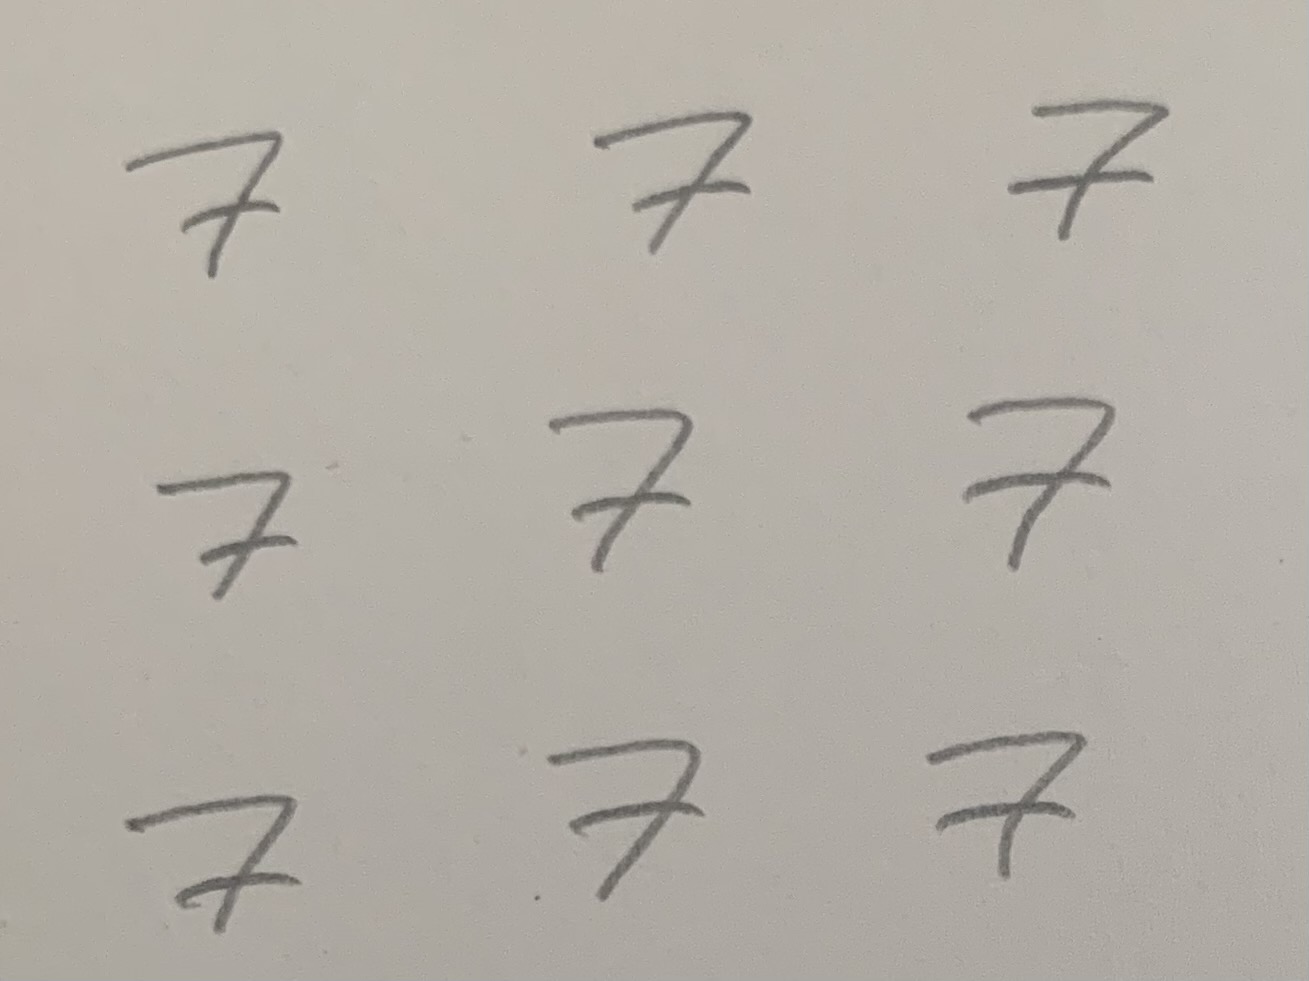 7 7 7
7 7 7
7 7 7